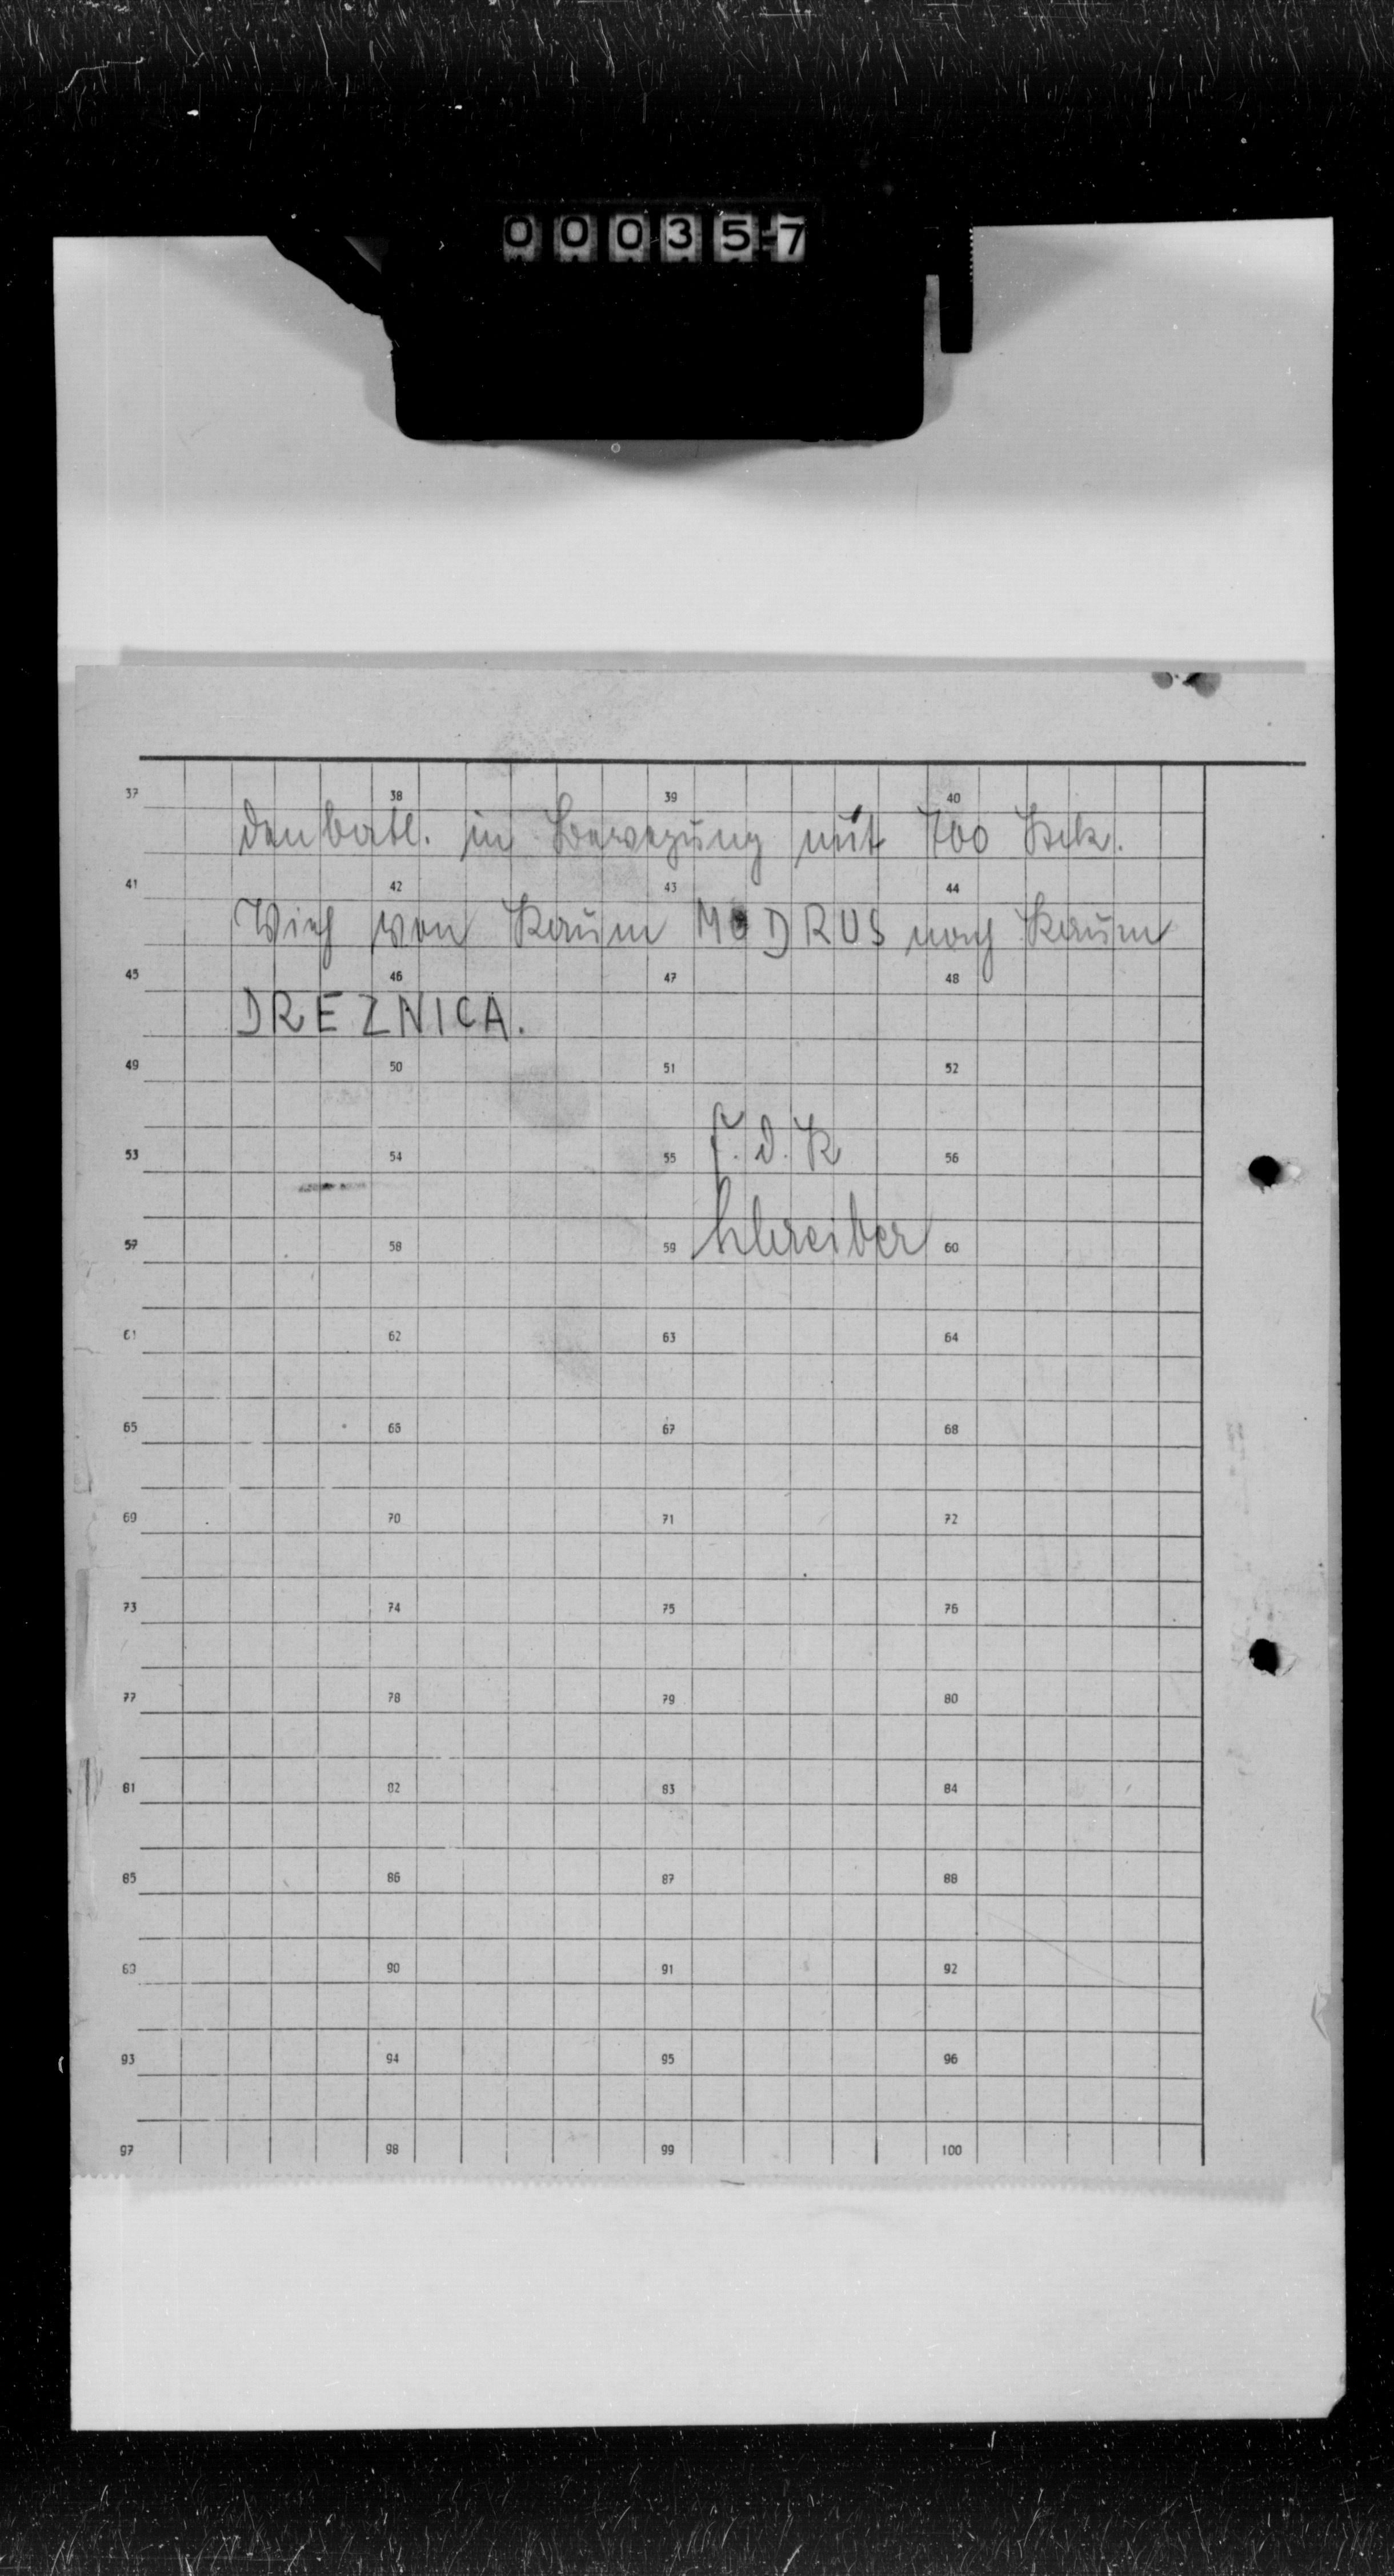 00035-7
37 38 39 40
denbatl. in Bewegung mit 700 Stck.
41 42 43 44
Vieh von Raum MODRUS nach Raum
45 46 47 48
DREZNICA.
49 50 51 52
F. d. R
53 54 55 56
Schreiber
57 58 59 60
61 62 63 64
65 66 67 68
69 70 71 72
73 74 75 76
77 78 79 80
81 82 83 84
85 86 87 88
89 90 91 92
93 94 95 96
97 98 99 100